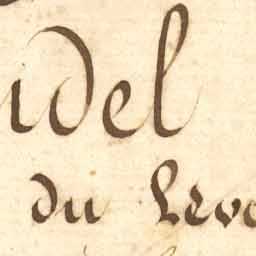 idel
du Leve